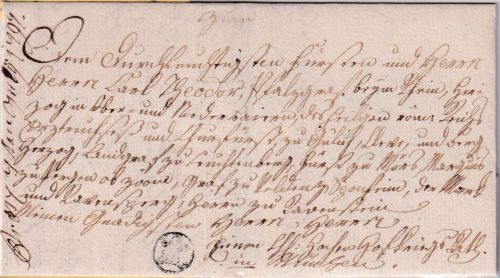 Dem Durchleuchtigsten Fürsten und Herrn
Herrn Carl Theodor, Pfalzgraf beym Rhein, Her-
zog in Ober- und Niederbaiern, des Heiligen röm. Reichs
Erztruchseß und Kurfürst, zu Gülich, Cleve, und Berg
Herzog, Landgraf zu Leuchtenberg, Fürst zu Mörs, Marquis
zu Bergen op Zoom, Graf zu Veldenz, Sponheim, der Mark
und Ravensperg, Herrn zu Ravenstein
Meinen Gnädigsten Herrn Herrn
Hofkriegs Rath
in München